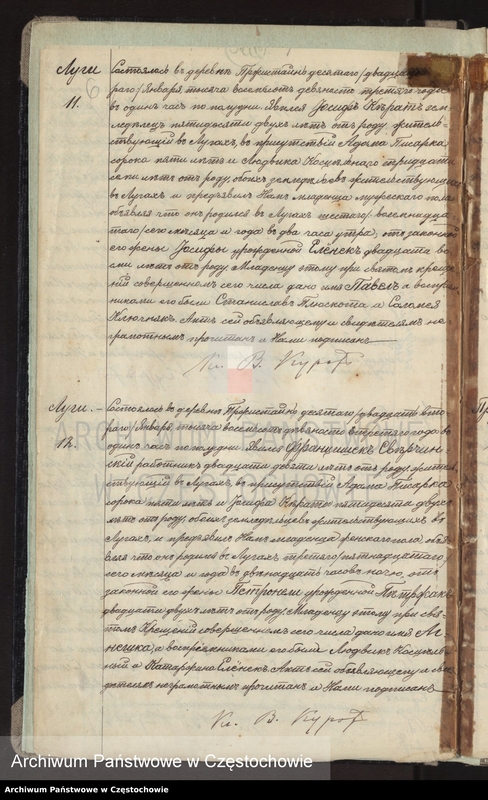 Луги
11.
Состоялось въ деревнѣ Пржистайнь десятаго/двадцать вто
раго/Января тысяча восемьсотъ девяносто третьяго года
въ одинъ часъ по полудни. Явился Іосифъ Кѣратъ зем
ледѣлецъ пятидесяти двухъ лѣтъ отъ роду житель
ствующій въ Лугахъ, въ присутствіи Адама Писарка
сорока пяти лѣтъ и Людвика тридцати
семи лѣтъ отъ роду обоихъ земледѣльцевъ жительствующихъ
въ Лугахъ и предъявилъ Намъ младенца мужескаго пола
объявляя что онъ родился въ Лугахъ шестаго/восемнадца
таго/сего мѣсяца и года въ два часа утра, отъ законной
его жены Іосифы урожденной Еленскъ двадцати во
сьми лѣтъ отъ роду. Младенцу этому при святомъ креще
ніи совершенномъ сего числа дано имя Павелъ а воспрі
никами его были Станиславъ Плоскота и Саломея
Ключнякъ. Актъ сей объявляющему и свидѣтелямъ не
грамотнымъ прочитанъ и Нами подписанъ
Кс. В. Куроѣ
Луги. -
12.
Состоялось въ деревнѣ Пржистайнь десятаго/двадцать вто
раго/Января тысяча восемьсотъ девяносто третьяго года въ
одинъ часъ по полудни. Явился Францишекъ
работникъ двадцати девяти лѣтъ отъ роду житель
ствующій въ Лугахъ, въ присутствіи Адама Писарка
сорока пяти лѣтъ и Іосифа Кѣрата пятидесяти двухъ
лѣтъ отъ роду обоихъ земледѣльцевъ жительствующихъ въ
Лугахъ, и предъявилъ Намъ младенца женскаго пола объя
вляя что онъ родился въ Лугахъ третьяго/пятнадцатаго/
сего мѣсяца и года въ двѣнадцать часовъ ночи, отъ
законной его жены Петронели урожденной Пѣтржакъ
двадцати двухъ лѣтъ отъ роду. Младенцу этому при свя
томъ Крещеніи совершенномъ сего числа дано имя Аг
нешка, а воспріемниками его были Людвикъ
и Катаржина Еленскъ. Актъ сей объявляющему и сви
дѣтелямъ неграмотнымъ прочитанъ и Нами подписанъ
Кс. В. Куроѣ
ARCHIWUM PAŃSTWOWE
W CZĘSTOCHOWIE
Archiwum Państwowe w Częstochowie
Archiwum Państwowe w Częstochowie